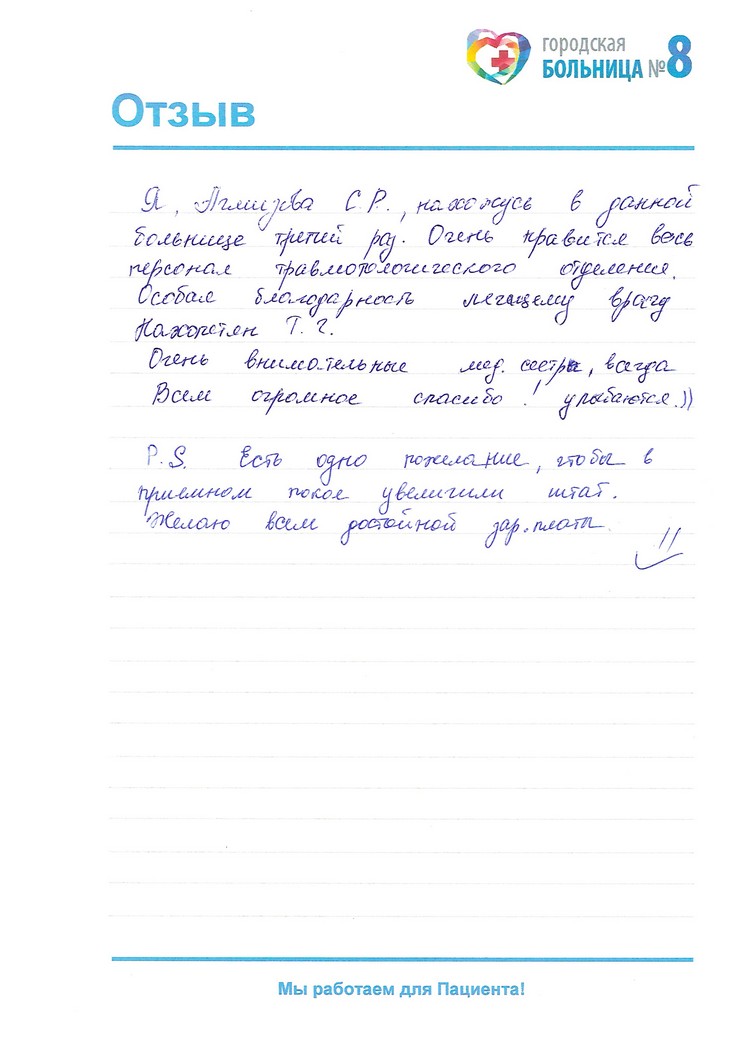 городская
БОЛЬНИЦА №8
Отзыв
Я, С.Р., нахожусь в данной
больнице третий раз. Очень нравится весь
персонал травмотологического отделения.
Особая благодарность лечащему врачу
Т.Г.
Очень внимательные мед. сестры, всегда
Всем огромное спасибо! улыбаются.))
P.S. Есть одно пожелание, чтобы в
приемном покое увеличили штат.
Желаю всем достойной зар.платы
!!
Мы работаем для Пациента!